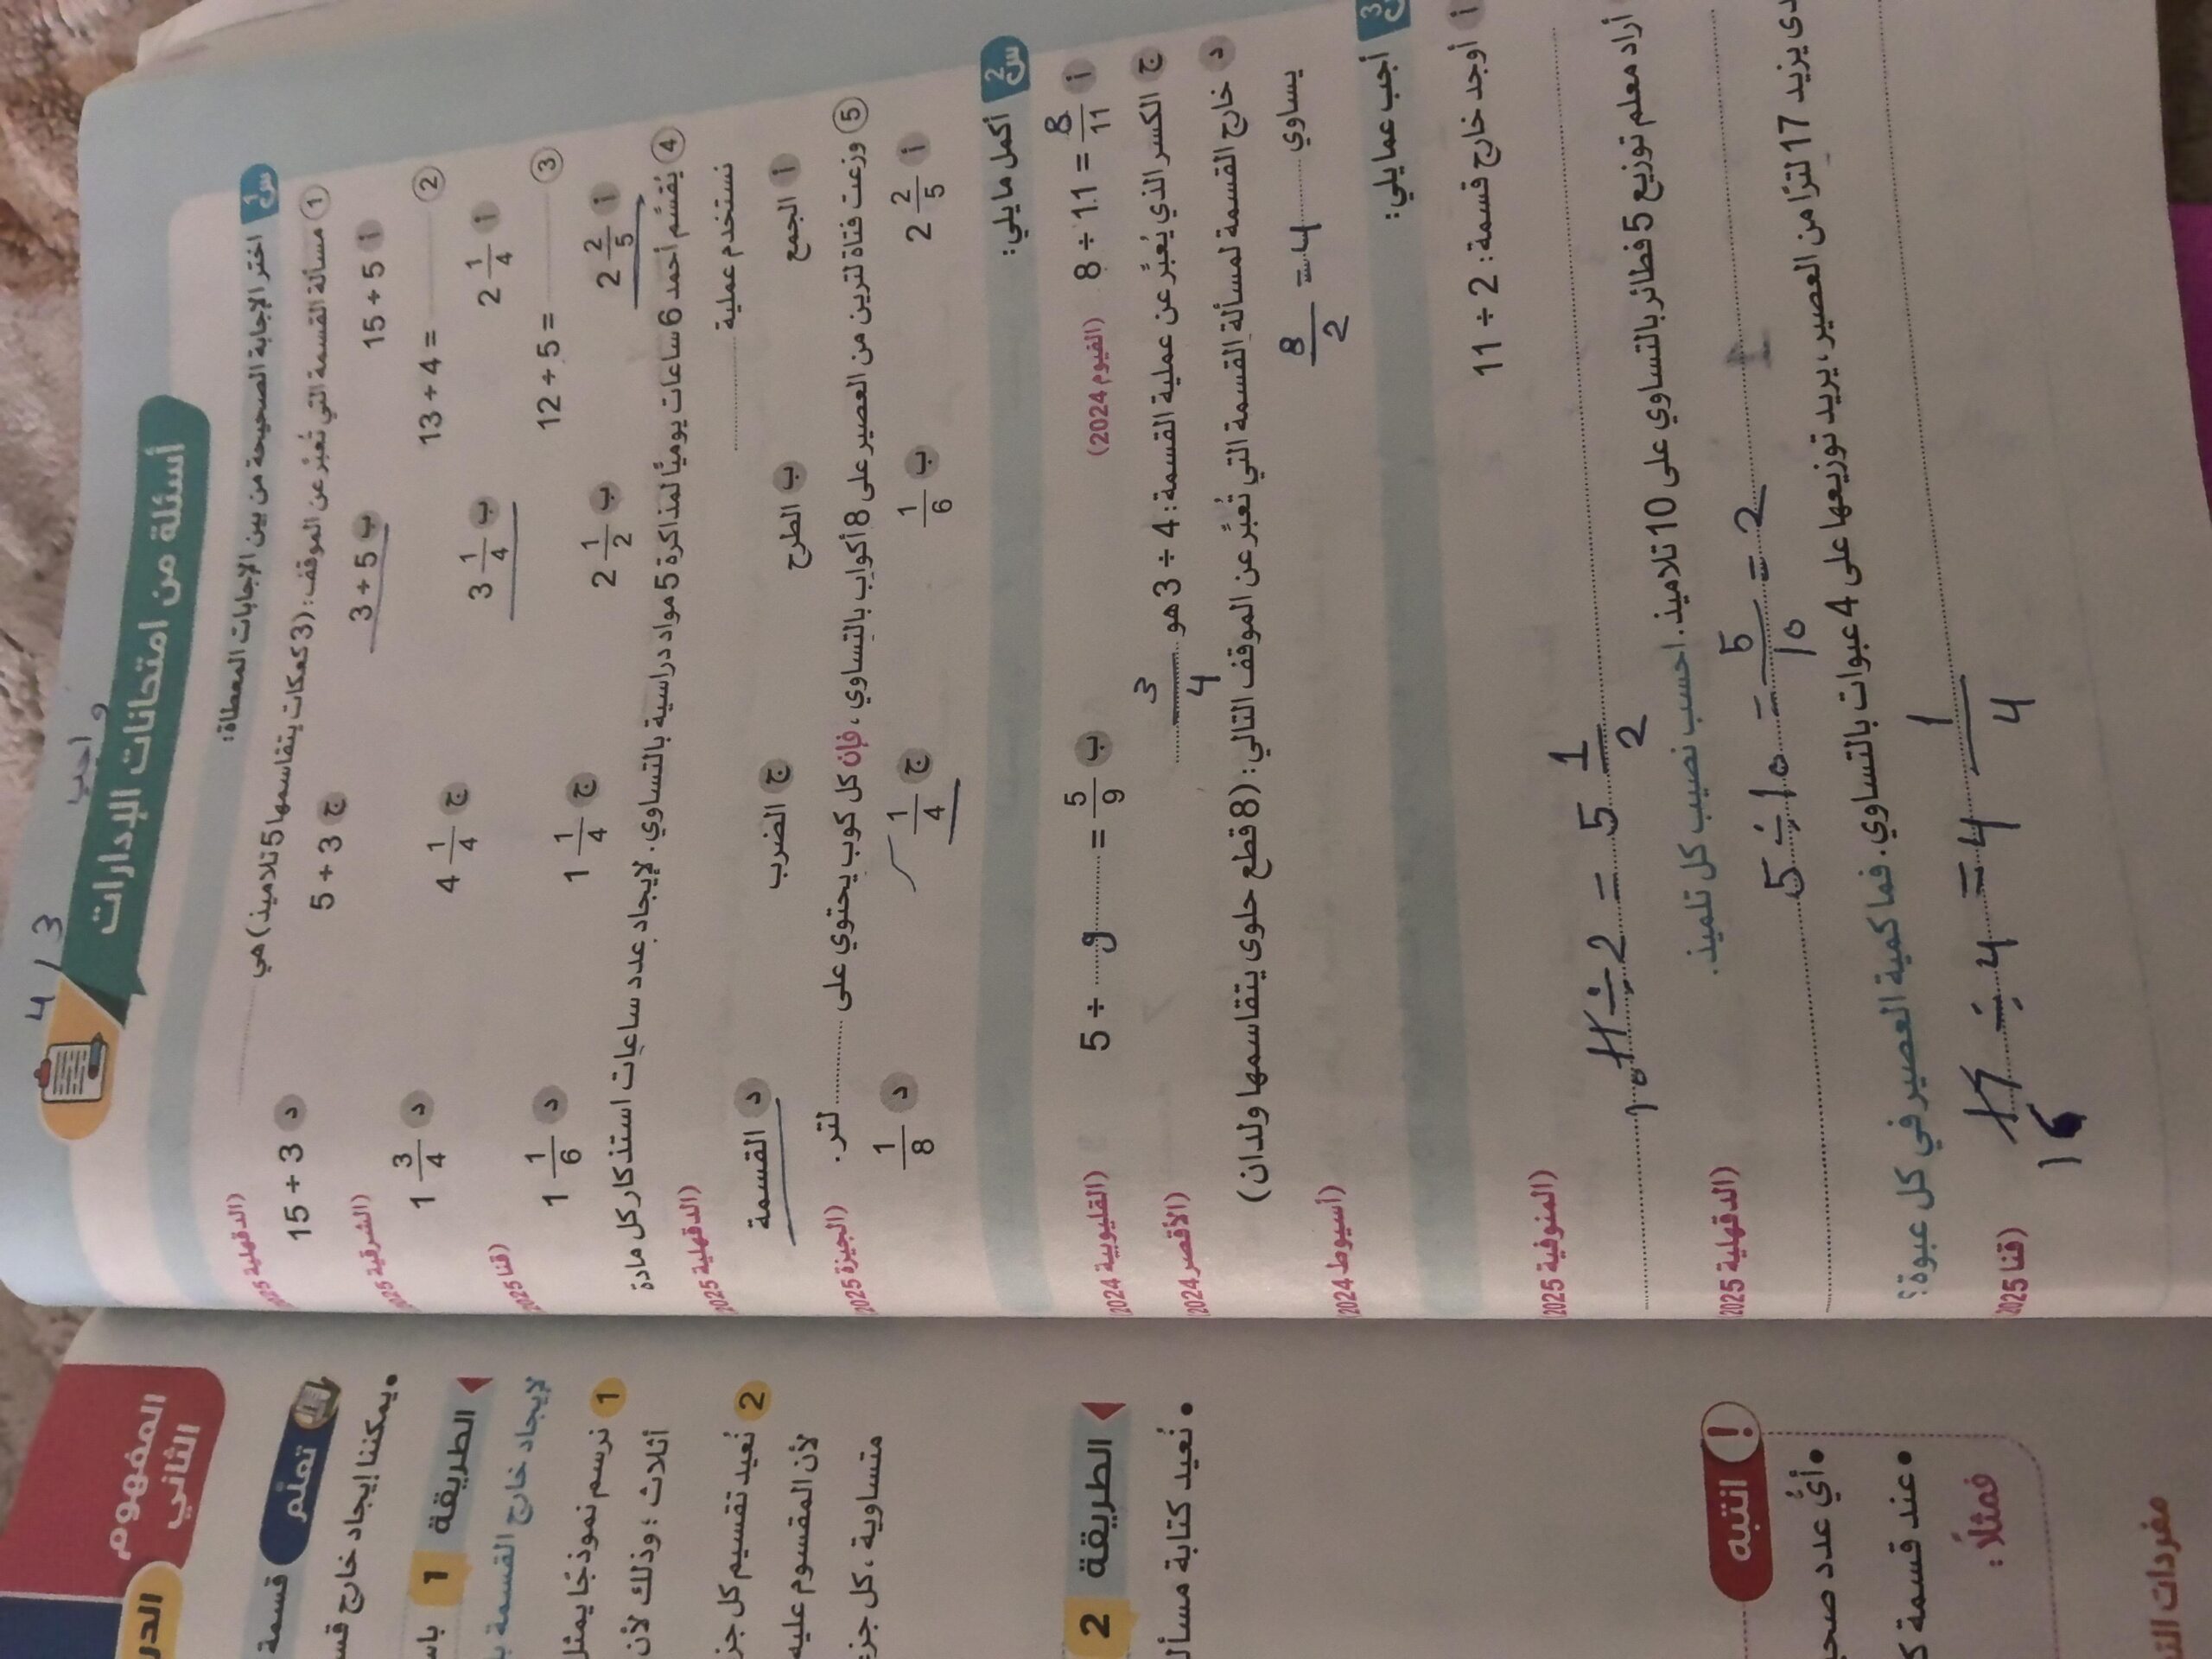 4/3
واجب
أسئلة من امتحانات الإدارات
س1 اختر الإجابة الصحيحة من بين الإجابات المعطاة:
1 مسألة القسمة التي تُعبِّر عن الموقف: (3 كعكات يتقاسمها 5 تلاميذ) هي ........ (الدقهلية 2025
أ 15 ÷ 5 ب 3 ÷ 5 ج 5 ÷ 3 د 15 ÷ 3
2 ........ = 13 ÷ 4 (الشرقية 2025
أ 2 1/4 ب 3 1/4 ج 4 1/4 د 1 3/4
3 ........ = 12 ÷ 5 (قنا 2025
أ 2 2/5 ب 2 1/2 ج 1 1/4 د 1 1/6
4 يُقسِّم أحمد 6 ساعات يوميًّا لمذاكرة 5 مواد دراسية بالتساوي. لإيجاد عدد ساعات استذكار كل مادة
نستخدم عملية ........ (الدقهلية 2025
أ الجمع ب الطرح ج الضرب د القسمة
5 وزعت فتاة لترين من العصير على 8 أكواب بالتساوي، فإن كل كوب يحتوي على ........ لتر. (الجيزة 2025
أ 2 2/5 ب 1/6 ج 1/4 د 1/8
س2 أكمل ما يلي:
أ 8 ÷ 11 = 8/11 (الفيوم 2024) ب 5 ÷ 9 = 5/9 (القليوبية 2024
ج الكسر الذي يُعبِّر عن عملية القسمة: 4 ÷ 3 هو 3/4 (الأقصر 2024
د خارج القسمة لمسألة القسمة التي تُعبِّر عن الموقف التالي: (8 قطع حلوى يتقاسمها ولدان)
يساوي 8/2 = 4 (أسيوط 2024
س3 أجب عما يلي:
أ أوجد خارج قسمة: 2 ÷ 11 (المنوفية 2025
11 ÷ 2 = 5 1/2
10
أراد معلم توزيع 5 فطائر بالتساوي على 10 تلاميذ. احسب نصيب كل تلميذ. (الدقهلية 2025
5 ÷ 10 = 5/10 = 2
دى يزيد 17 لترًا من العصير، يريد توزيعها على 4 عبوات بالتساوي. فما كمية العصير في كل عبوة؟ (قنا 2025)
17 ÷ 4 = 4 1/4
16
المفهوم الثاني
الدر
تعلم
قسمة
• يمكننا إيجاد خارج قس
الطريقة 1 باس
لإيجاد خارج القسمة ب
1 نرسم نموذجًا يمثل
أثلاث؛ وذلك لأن
2 نُعيد تقسيم كل جز
لأن المقسوم عليه
متساوية، كل جزء
الطريقة 2
• نُعيد كتابة مسأل
انتبه !
• أيُّ عدد صحي
• عند قسمة ك
فمثلًا:
مفردات الت